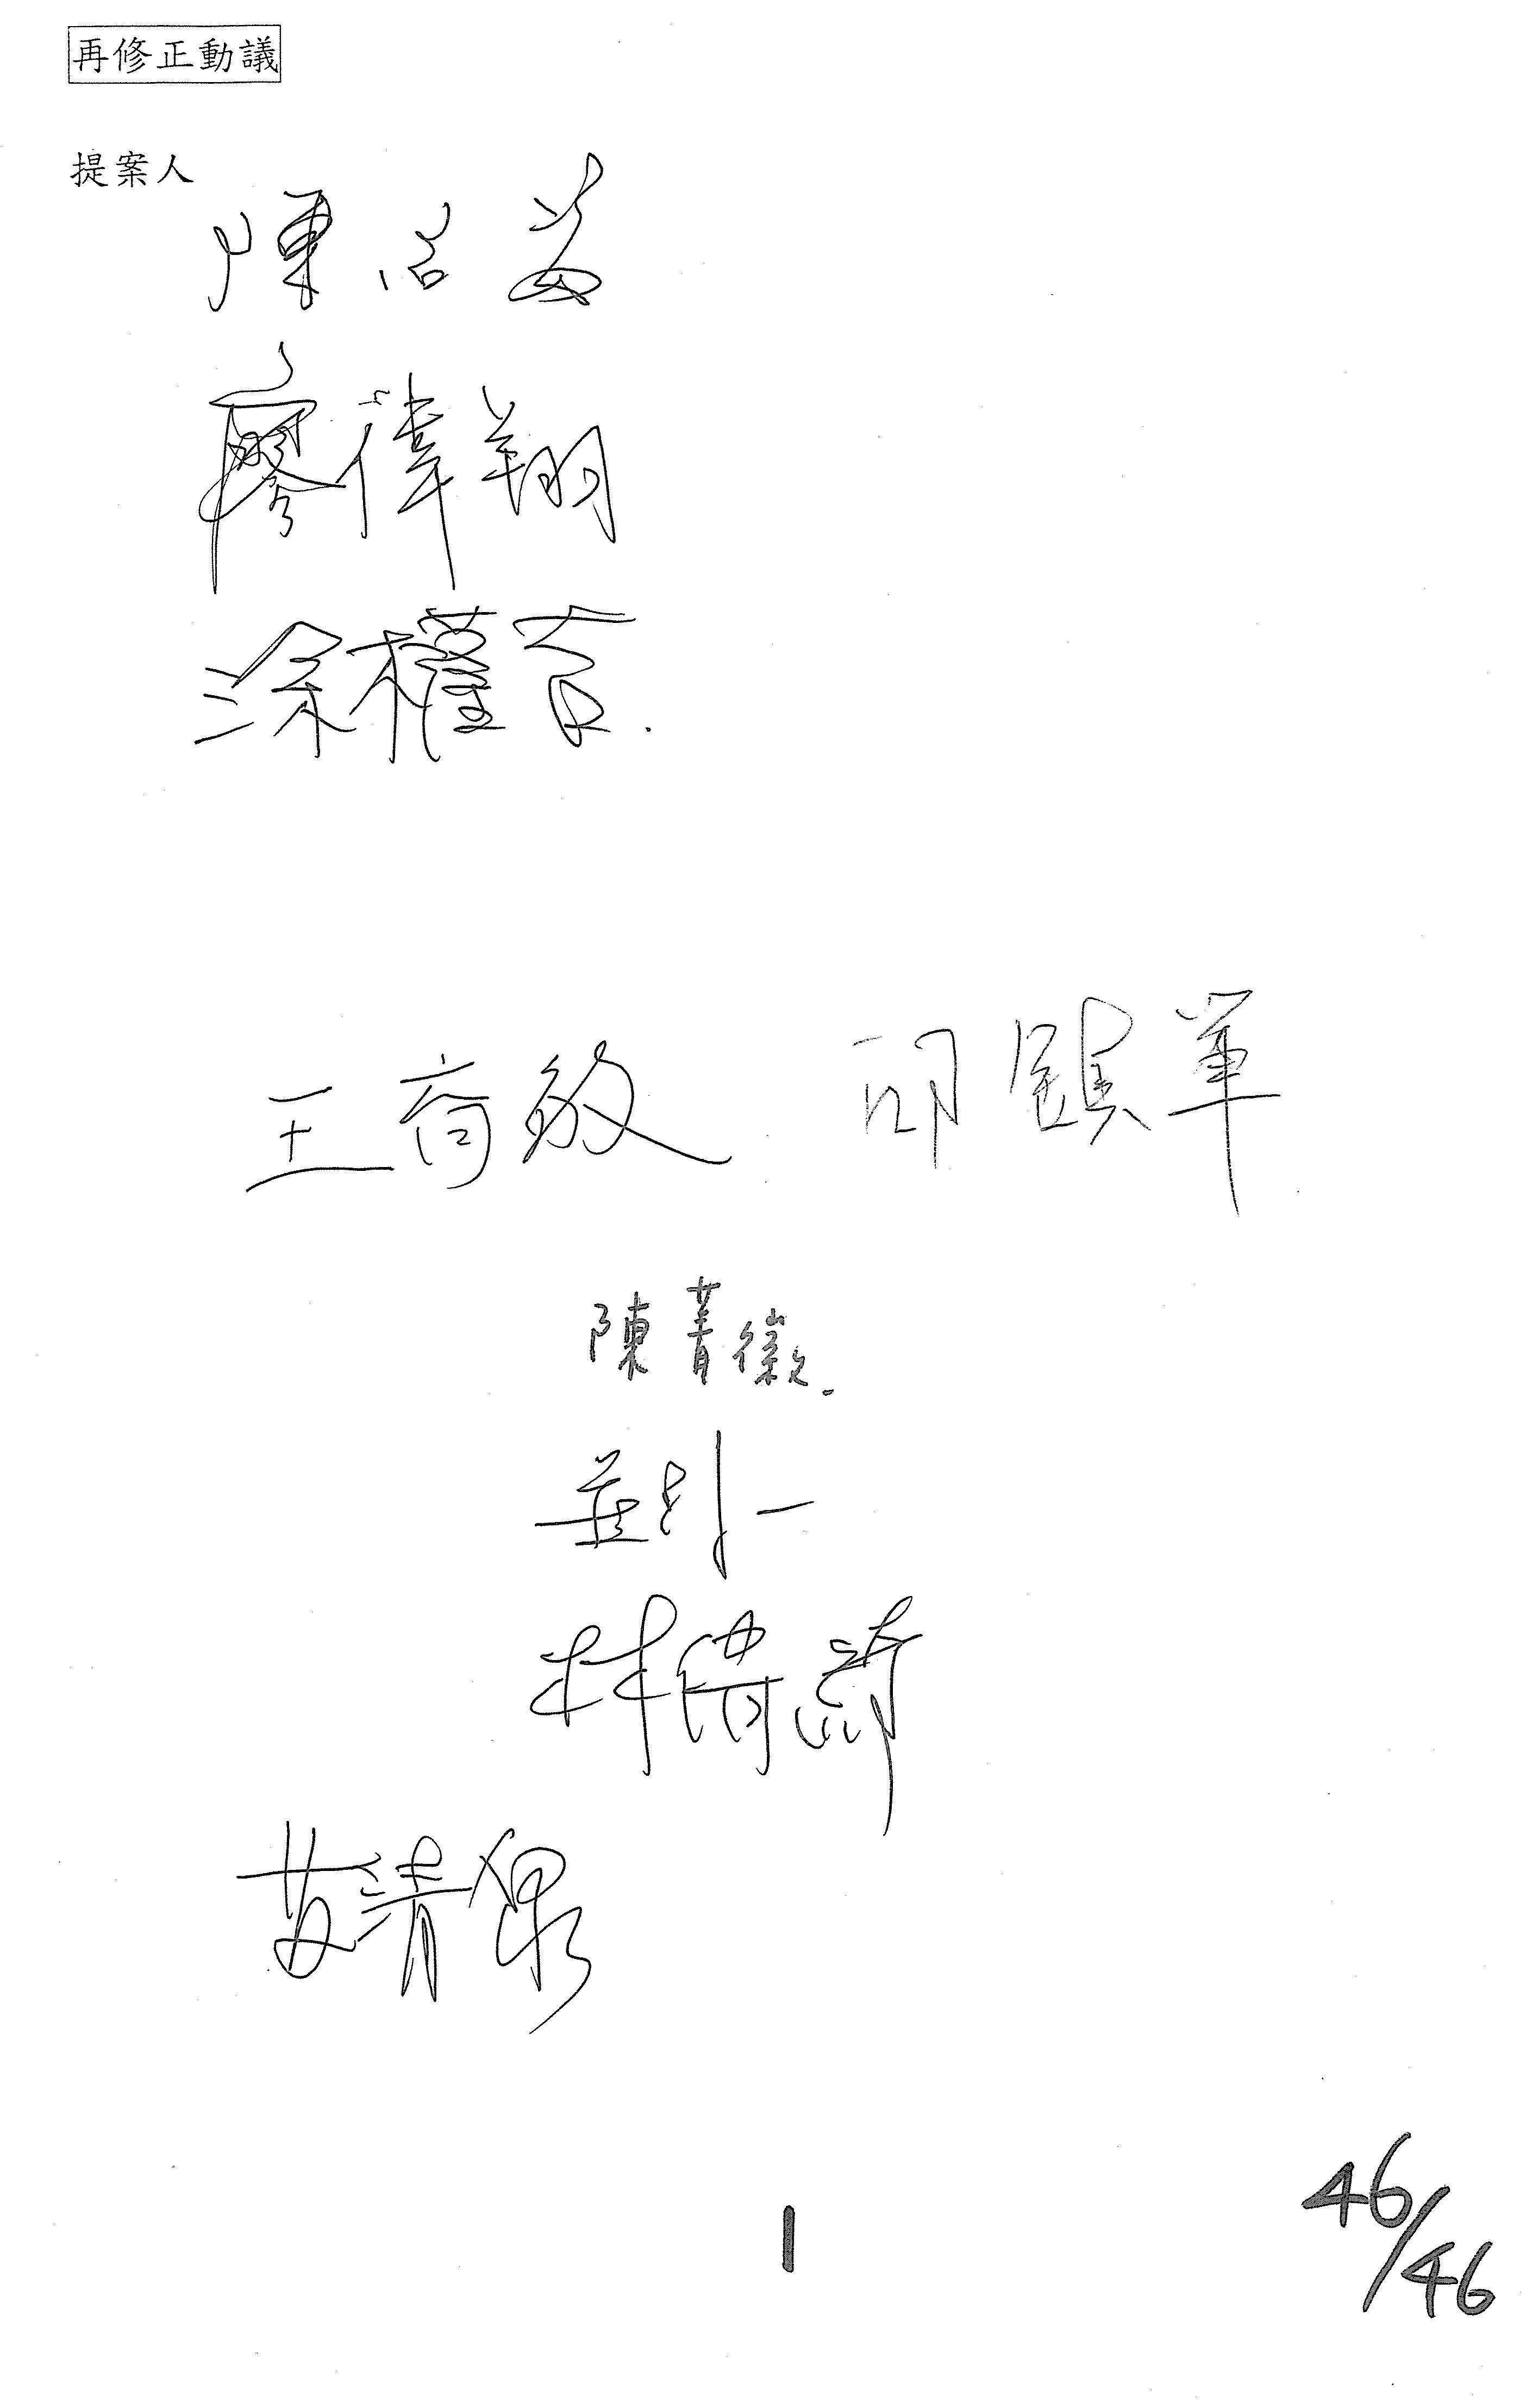 再修正動議
提案人
陳昭姿
廖偉翔
涂權吉
王育敏 邱鎮軍
陳菁徽
林倩綺
蘇清泉
1
46/46